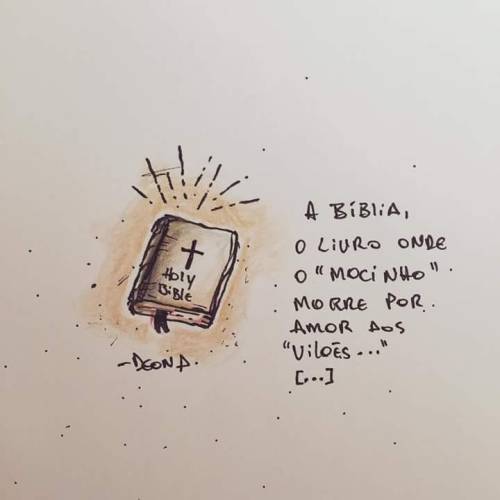 Holy
Bible
-DEONA.
A BÍBLIA,
O LIVRO ONDE
O "MOCINHO"
MORRE POR
AMOR AOS
"VILÕES..."
[...]